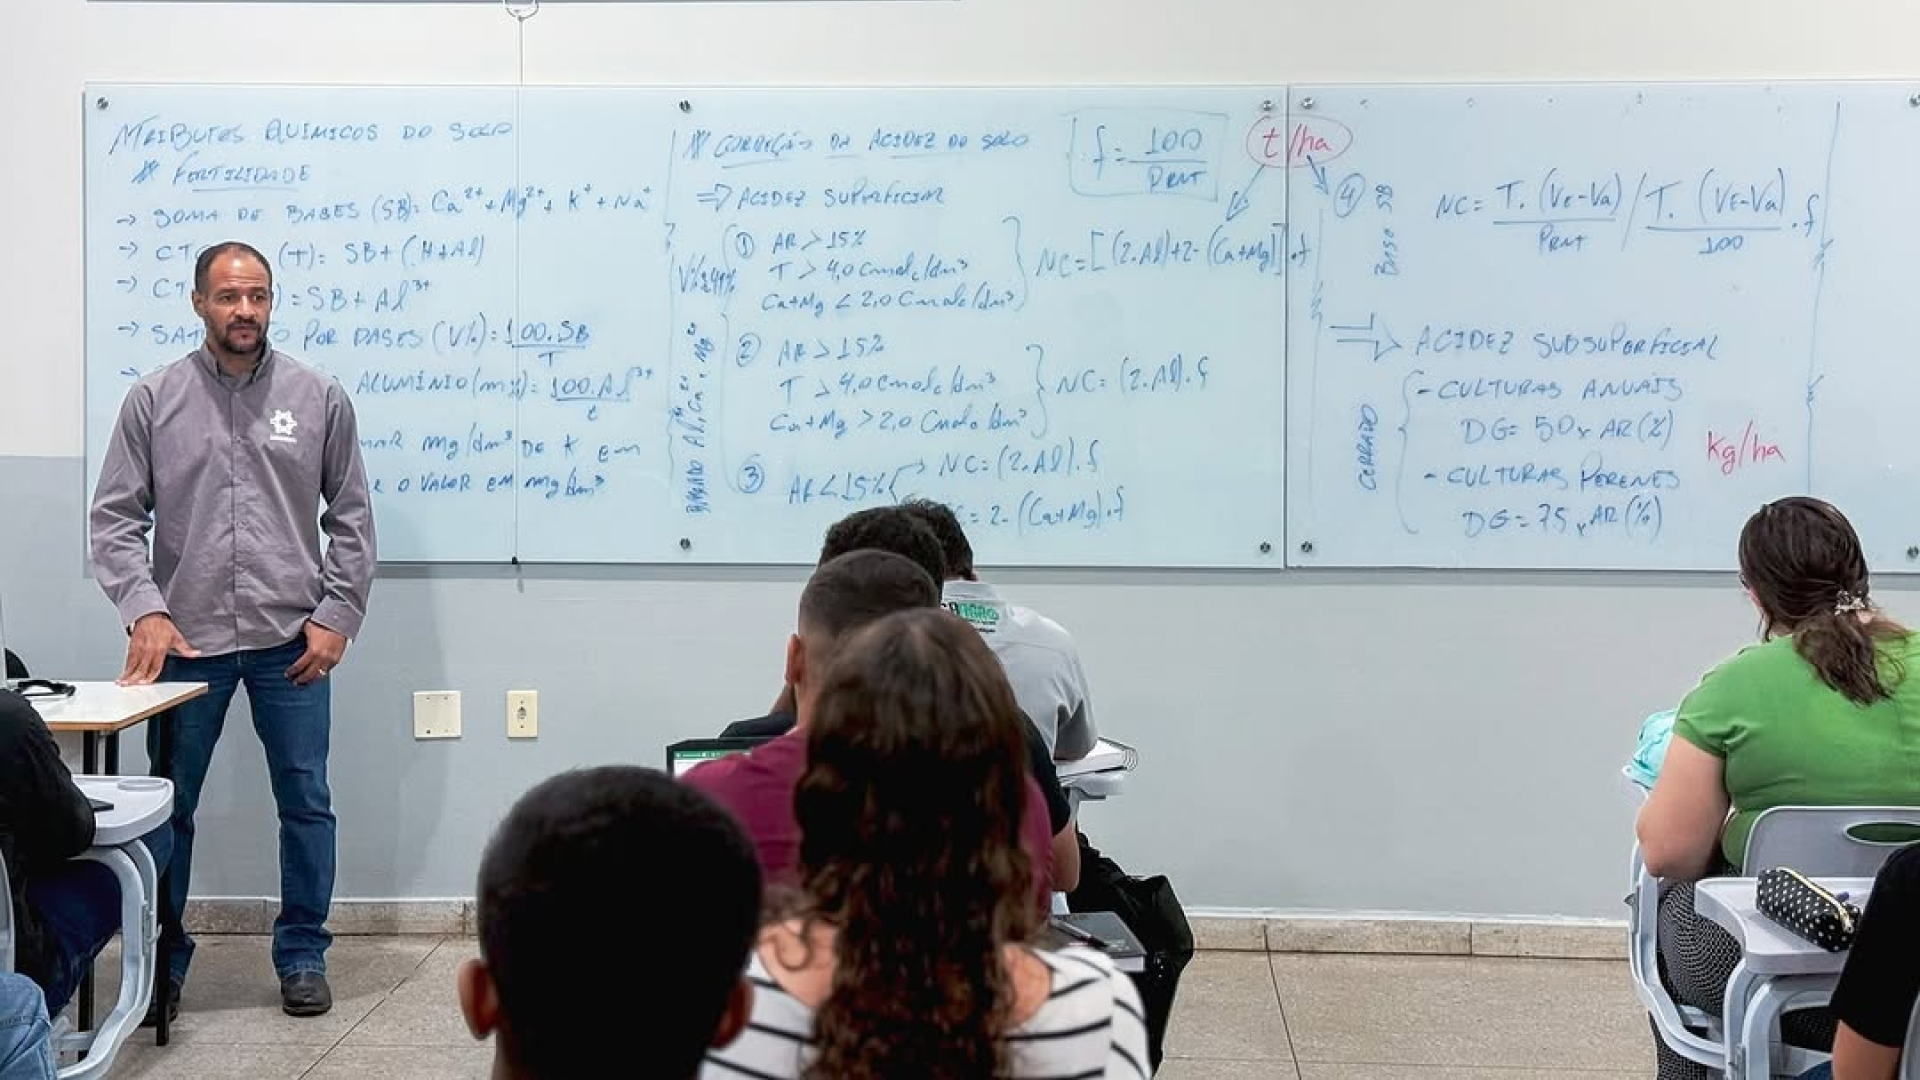 ATRIBUTOS QUÍMICOS DO SOLO
# FERTILIDADE
→ SOMA DE BASES (SB): Ca²⁺ + Mg²⁺ + K⁺ + Na⁺
→ CT (T): SB + (H+Al)
→ CT ) = SB + Al³⁺
→ SAT O POR BASES (V%) = 100.SB / T
ALUMÍNIO (m%): 100.Al³⁺ / t
mg/dm³ DE K em
e O VALOR EM mg/dm³
# CORREÇÃO DA ACIDEZ DO SOLO
f = 100 / PRNT
t/ha
⇒ ACIDEZ SUPERFICIAL
① AR > 15%
T > 4,0 Cmolc/dm³
Ca+Mg < 2,0 Cmolc/dm³
NC = [(2.Al)+2-(Ca+Mg)].f
② AR > 15%
T > 4,0 Cmolc/dm³
Ca+Mg > 2,0 Cmolc/dm³
NC = (2.Al).f
③ AR < 15%
NC = (2.Al).f
= 2-(Ca+Mg).f
④
NC = T.(VE-Va) / PRNT / T.(VE-Va) / 100 .f
⇒ ACIDEZ SUBSUPERFICIAL
CERRADO
- CULTURAS ANUAIS
DG = 50 x AR (%)
kg/ha
- CULTURAS PERENES
DG = 75 x AR (%)